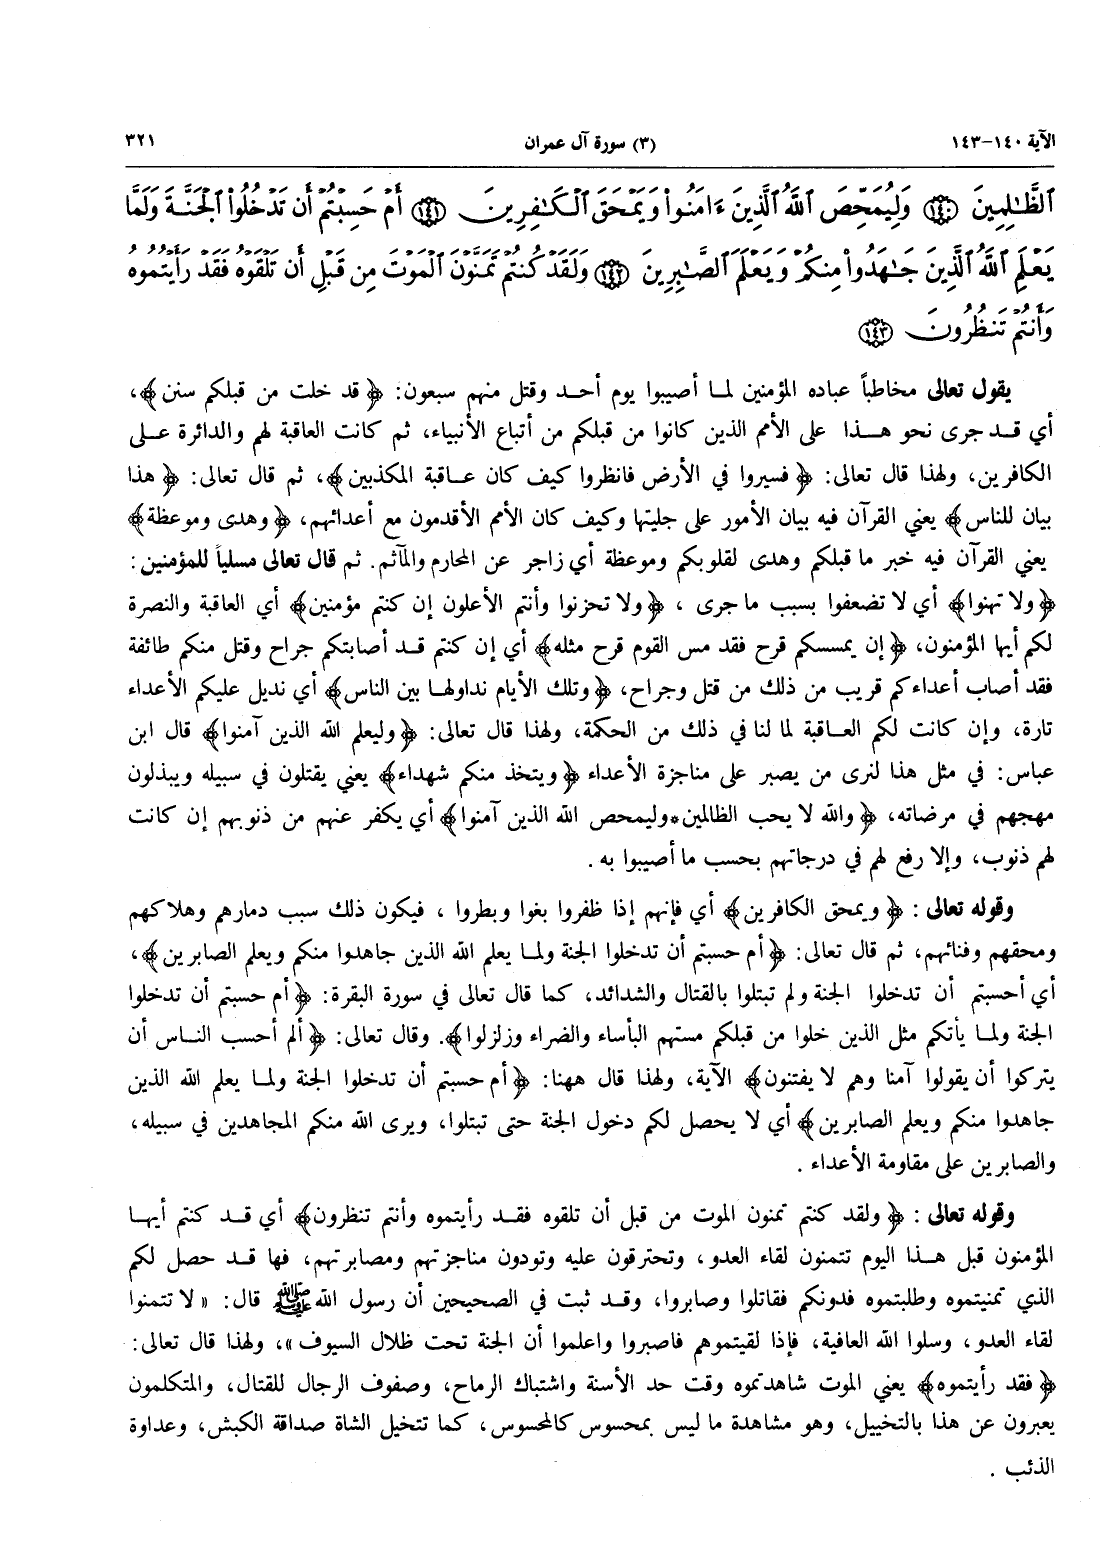 الآية ١٤٠-١٤٣ (٣) سورة آل عمران ٣٢١
ٱلظَّٰلِمِينَ ﴿١٤٠﴾ وَلِيُمَحِّصَ ٱللَّهُ ٱلَّذِينَ ءَامَنُوا۟ وَيَمْحَقَ ٱلْكَٰفِرِينَ ﴿١٤١﴾ أَمْ حَسِبْتُمْ أَن تَدْخُلُوا۟ ٱلْجَنَّةَ وَلَمَّا
يَعْلَمِ ٱللَّهُ ٱلَّذِينَ جَٰهَدُوا۟ مِنكُمْ وَيَعْلَمَ ٱلصَّٰبِرِينَ ﴿١٤٢﴾ وَلَقَدْ كُنتُمْ تَمَنَّوْنَ ٱلْمَوْتَ مِن قَبْلِ أَن تَلْقَوْهُ فَقَدْ رَأَيْتُمُوهُ
وَأَنتُمْ تَنظُرُونَ ﴿١٤٣﴾
يقول تعالى مخاطباً عباده المؤمنين لما أصيبوا يوم أحد وقتل منهم سبعون: ﴿قد خلت من قبلكم سنن﴾،
أي قد جرى نحو هذا على الأمم الذين كانوا من قبلكم من أتباع الأنبياء، ثم كانت العاقبة لهم والدائرة على
الكافرين، ولهذا قال تعالى: ﴿فسيروا في الأرض فانظروا كيف كان عاقبة المكذبين﴾، ثم قال تعالى: ﴿هذا
بيان للناس﴾ يعني القرآن فيه بيان الأمور على جليتها وكيف كان الأمم الأقدمون مع أعدائهم، ﴿وهدى وموعظة﴾
يعني القرآن فيه خبر ما قبلكم وهدى لقلوبكم وموعظة أي زاجر عن المحارم والمآثم. ثم قال تعالى مسلياً للمؤمنين:
﴿ولا تهنوا﴾ أي لا تضعفوا بسبب ما جرى، ﴿ولا تحزنوا وأنتم الأعلون إن كنتم مؤمنين﴾ أي العاقبة والنصرة
لكم أيها المؤمنون، ﴿إن يمسسكم قرح فقد مس القوم قرح مثله﴾ أي إن كنتم قد أصابتكم جراح وقتل منكم طائفة
فقد أصاب أعداءكم قريب من ذلك من قتل وجراح، ﴿وتلك الأيام نداولها بين الناس﴾ أي نديل عليكم الأعداء
تارة، وإن كانت لكم العاقبة لما لنا في ذلك من الحكمة، ولهذا قال تعالى: ﴿وليعلم الله الذين آمنوا﴾ قال ابن
عباس: في مثل هذا لنرى من يصبر على مناجزة الأعداء ﴿ويتخذ منكم شهداء﴾ يعني يقتلون في سبيله ويبذلون
مهجهم في مرضاته، ﴿والله لا يحب الظالمين*وليمحص الله الذين آمنوا﴾ أي يكفر عنهم من ذنوبهم إن كانت
لهم ذنوب، وإلا رفع لهم في درجاتهم بحسب ما أصيبوا به.
وقوله تعالى: ﴿ويمحق الكافرين﴾ أي فإنهم إذا ظفروا بغوا وبطروا، فيكون ذلك سبب دمارهم وهلاكهم
ومحقهم وفنائهم، ثم قال تعالى: ﴿أم حسبتم أن تدخلوا الجنة ولما يعلم الله الذين جاهدوا منكم ويعلم الصابرين﴾،
أي أحسبتم أن تدخلوا الجنة ولم تبتلوا بالقتال والشدائد، كما قال تعالى في سورة البقرة: ﴿أم حسبتم أن تدخلوا
الجنة ولما يأتكم مثل الذين خلوا من قبلكم مستهم البأساء والضراء وزلزلوا﴾. وقال تعالى: ﴿ألم أحسب الناس أن
يتركوا أن يقولوا آمنا وهم لا يفتنون﴾ الآية، ولهذا قال ههنا: ﴿أم حسبتم أن تدخلوا الجنة ولما يعلم الله الذين
جاهدوا منكم ويعلم الصابرين﴾ أي لا يحصل لكم دخول الجنة حتى تبتلوا، ويرى الله منكم المجاهدين في سبيله،
والصابرين على مقاومة الأعداء.
وقوله تعالى: ﴿ولقد كنتم تمنون الموت من قبل أن تلقوه فقد رأيتموه وأنتم تنظرون﴾ أي قد كنتم أيها
المؤمنون قبل هذا اليوم تتمنون لقاء العدو، وتحترقون عليه وتودون مناجزتهم ومصابرتهم، فها قد حصل لكم
الذي تمنيتموه وطلبتموه فدونكم فقاتلوا وصابروا، وقد ثبت في الصحيحين أن رسول الله ﷺ قال: «لا تتمنوا
لقاء العدو، وسلوا الله العافية، فإذا لقيتموهم فاصبروا واعلموا أن الجنة تحت ظلال السيوف»، ولهذا قال تعالى:
﴿فقد رأيتموه﴾ يعني الموت شاهدتموه وقت حد الأسنة واشتباك الرماح، وصفوف الرجال للقتال، والمتكلمون
يعبرون عن هذا بالتخييل، وهو مشاهدة ما ليس بمحسوس كالمحسوس، كما تتخيل الشاة صداقة الكبش، وعداوة
الذئب.